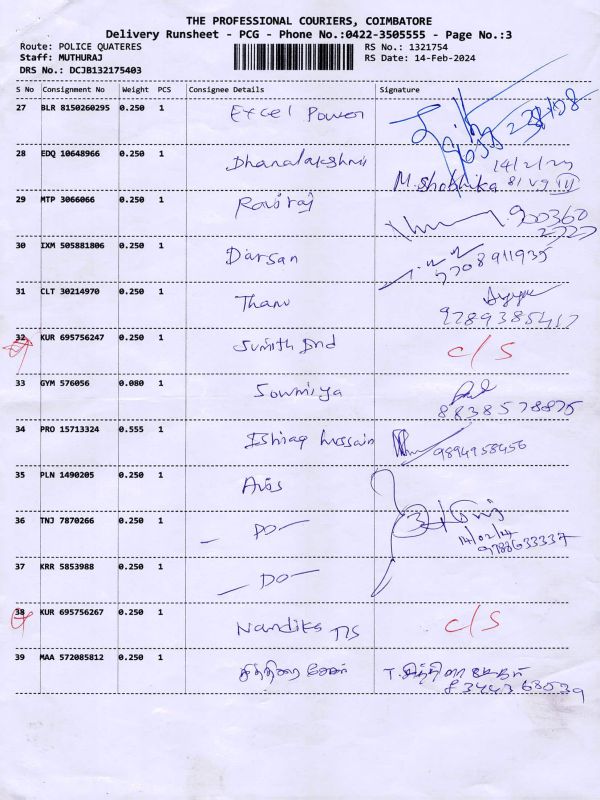 THE PROFESSIONAL COURIERS, COIMBATORE
Delivery Runsheet - PCG - Phone No.:0422-3505555 - Page No.:3
Route: POLICE QUATERES RS No.: 1321754
Staff: MUTHURAJ RS Date: 14-Feb-2024
DRS No.: DCJB132175403
S No Consignment No Weight PCS Consignee Details Signature
27 BLR 8150260295 0.250 1 Excel Power
28 EDQ 10648966 0.250 1 Dhanalakshmi 14/2/24
M.Shobhika
29 MTP 3066066 0.250 1 Raviraj 900360
2727
30 IXM 505881806 0.250 1 Darsan
9708911935
31 CLT 30214970 0.250 1 Thanu
9789385417
32 KUR 695756247 0.250 1 Sumith Ind c/s
33 GYM 576056 0.080 1 Sowmiya
8838578875
34 PRO 15713324 0.555 1 Ishraq Hussain 9894958456
35 PLN 1490205 0.250 1
36 TNJ 7870266 0.250 1 — DO —
14/02/24
9788633337
37 KRR 5853988 0.250 1 — DO —
38 KUR 695756267 0.250 1 Nandiks c/s
39 MAA 572085812 0.250 1 சித்திரை சேகர்
8344368039